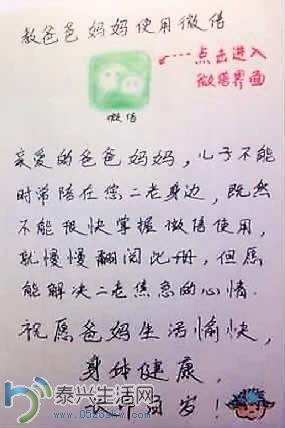 教爸爸妈妈使用微信
点击进入
微信界面
微信
亲爱的爸爸妈妈，儿子不能
时常陪在您二老身边，既然
不能很快掌握微信使用，
就慢慢翻阅此册，但愿
能解决二老焦急的心情.
祝愿爸妈生活愉快，
身体健康，
泰兴生活网
www.0523zhw.com